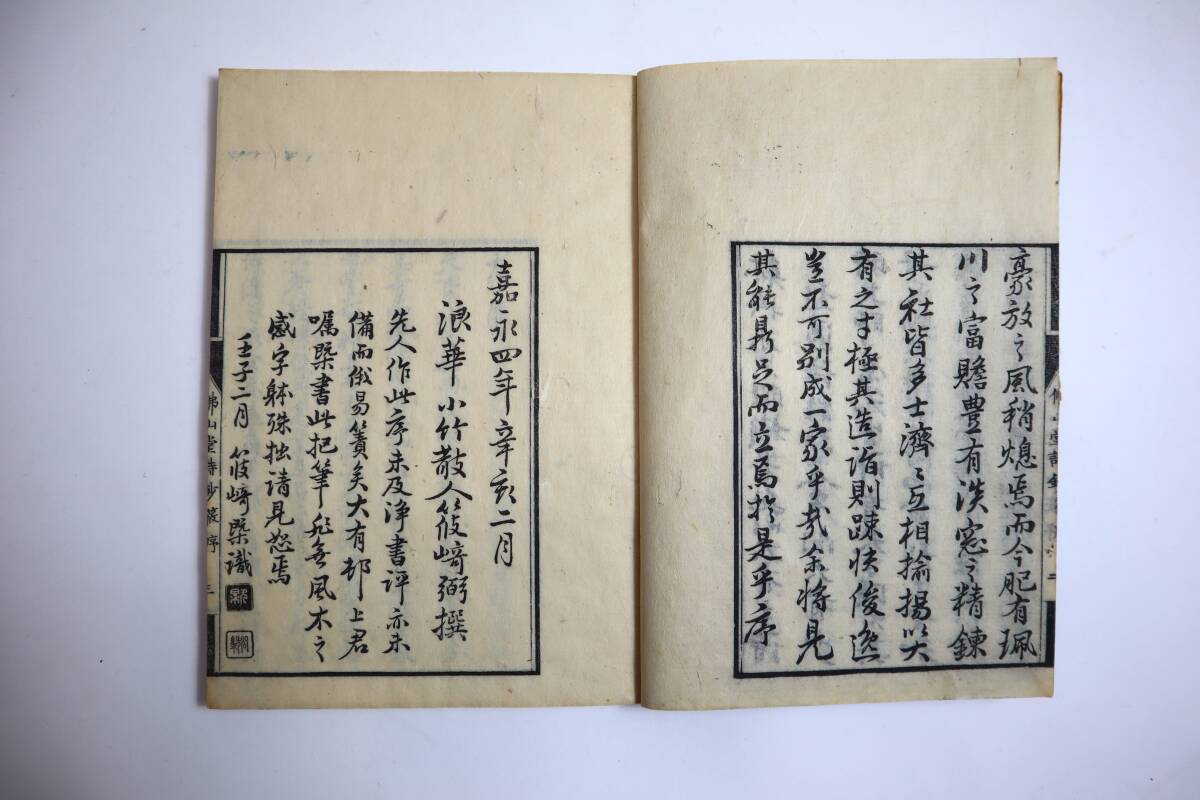 豪放之風稍熄焉而今肥有珮
川之富贍豊有淡窓之精鍊
其社皆多士濟々互相揄揚以大
有之才極其造詣則踈快俊逸
豈不可別成一家乎哉余將見
其能鼎足而立焉於是乎序
嘉永四年辛亥二月
浪華小竹散人篠﨑弼撰
先人作此序未及淨書評亦未
備而俄易簀矣大有邨上君
囑槩書此把筆非無風木之
感字躰殊拙請見恕焉
壬子二月篠﨑槩識
佛山堂詩鈔 序 二
佛山堂詩鈔 序 三